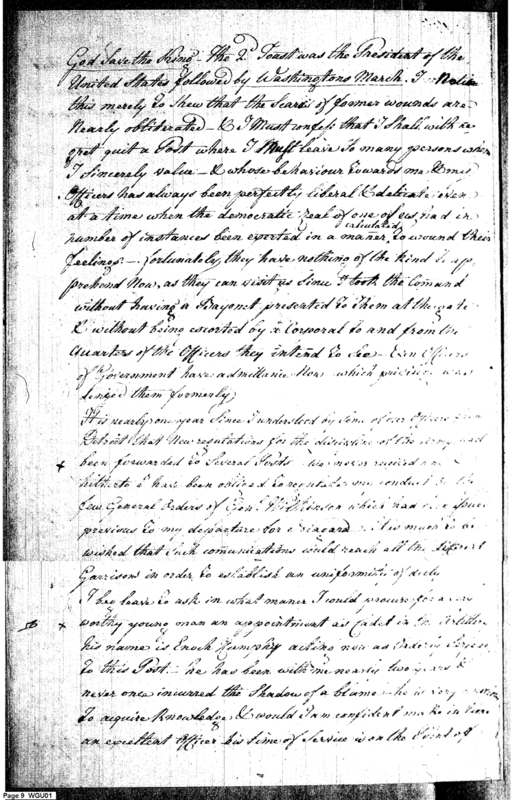 God Save the King. The 2d Toast was the President of the
United States followed by Washingtons March. I Notice
this merely to Shew that the Scars of former wounds are
Nearly obliterated - & I Must confess that I Shall with re
gret quit a Post where I Must leave So many persons whom
I Sincerely value - & whose behaviour towards me & my
Officers has always been perfectly liberal & delicate even
at a time when the democratic zeal of one of us, had in
number of instances been exerted in a manner calculated to wound their
feelings - fortunately, they have nothing of the kind to ap
prehend Now, as they can visit us Since I took the Comand
without having a Bayonet presented to Them at the gate
& without being escorted by a Corporal to and from the
Quarters of the Officers they intend to See - Even Officers
of Government have admittance Now which privilege was
denyed them formerly
It is nearly one year Since I understood by Some of our Officers from
Detroit that New regulations for the discipline of the Army had
been forwarded to Several Posts
hitherto I have been obliged to regulate my conduct by the
few General Orders of Genl Wilkinson which had been issued
previous to my departure for Niagara - it is much to be
wished that Such comunications would reach all the different
Garrisons in order to establish an uniformity of duty
I beg leave to ask in what maner I could procure for a very
worthy young man an appointment as Cadet in the Artillery
his name is Enoch Humphy acting now as Orderly
to this Post - he has been with me nearly two years &
never once incurred the Shadow of a blame - he is very anxious
to acquire Knowledge & would I am confident make in time
an excellent Officer his time of Service is on the Point of
Page 9 WGU01